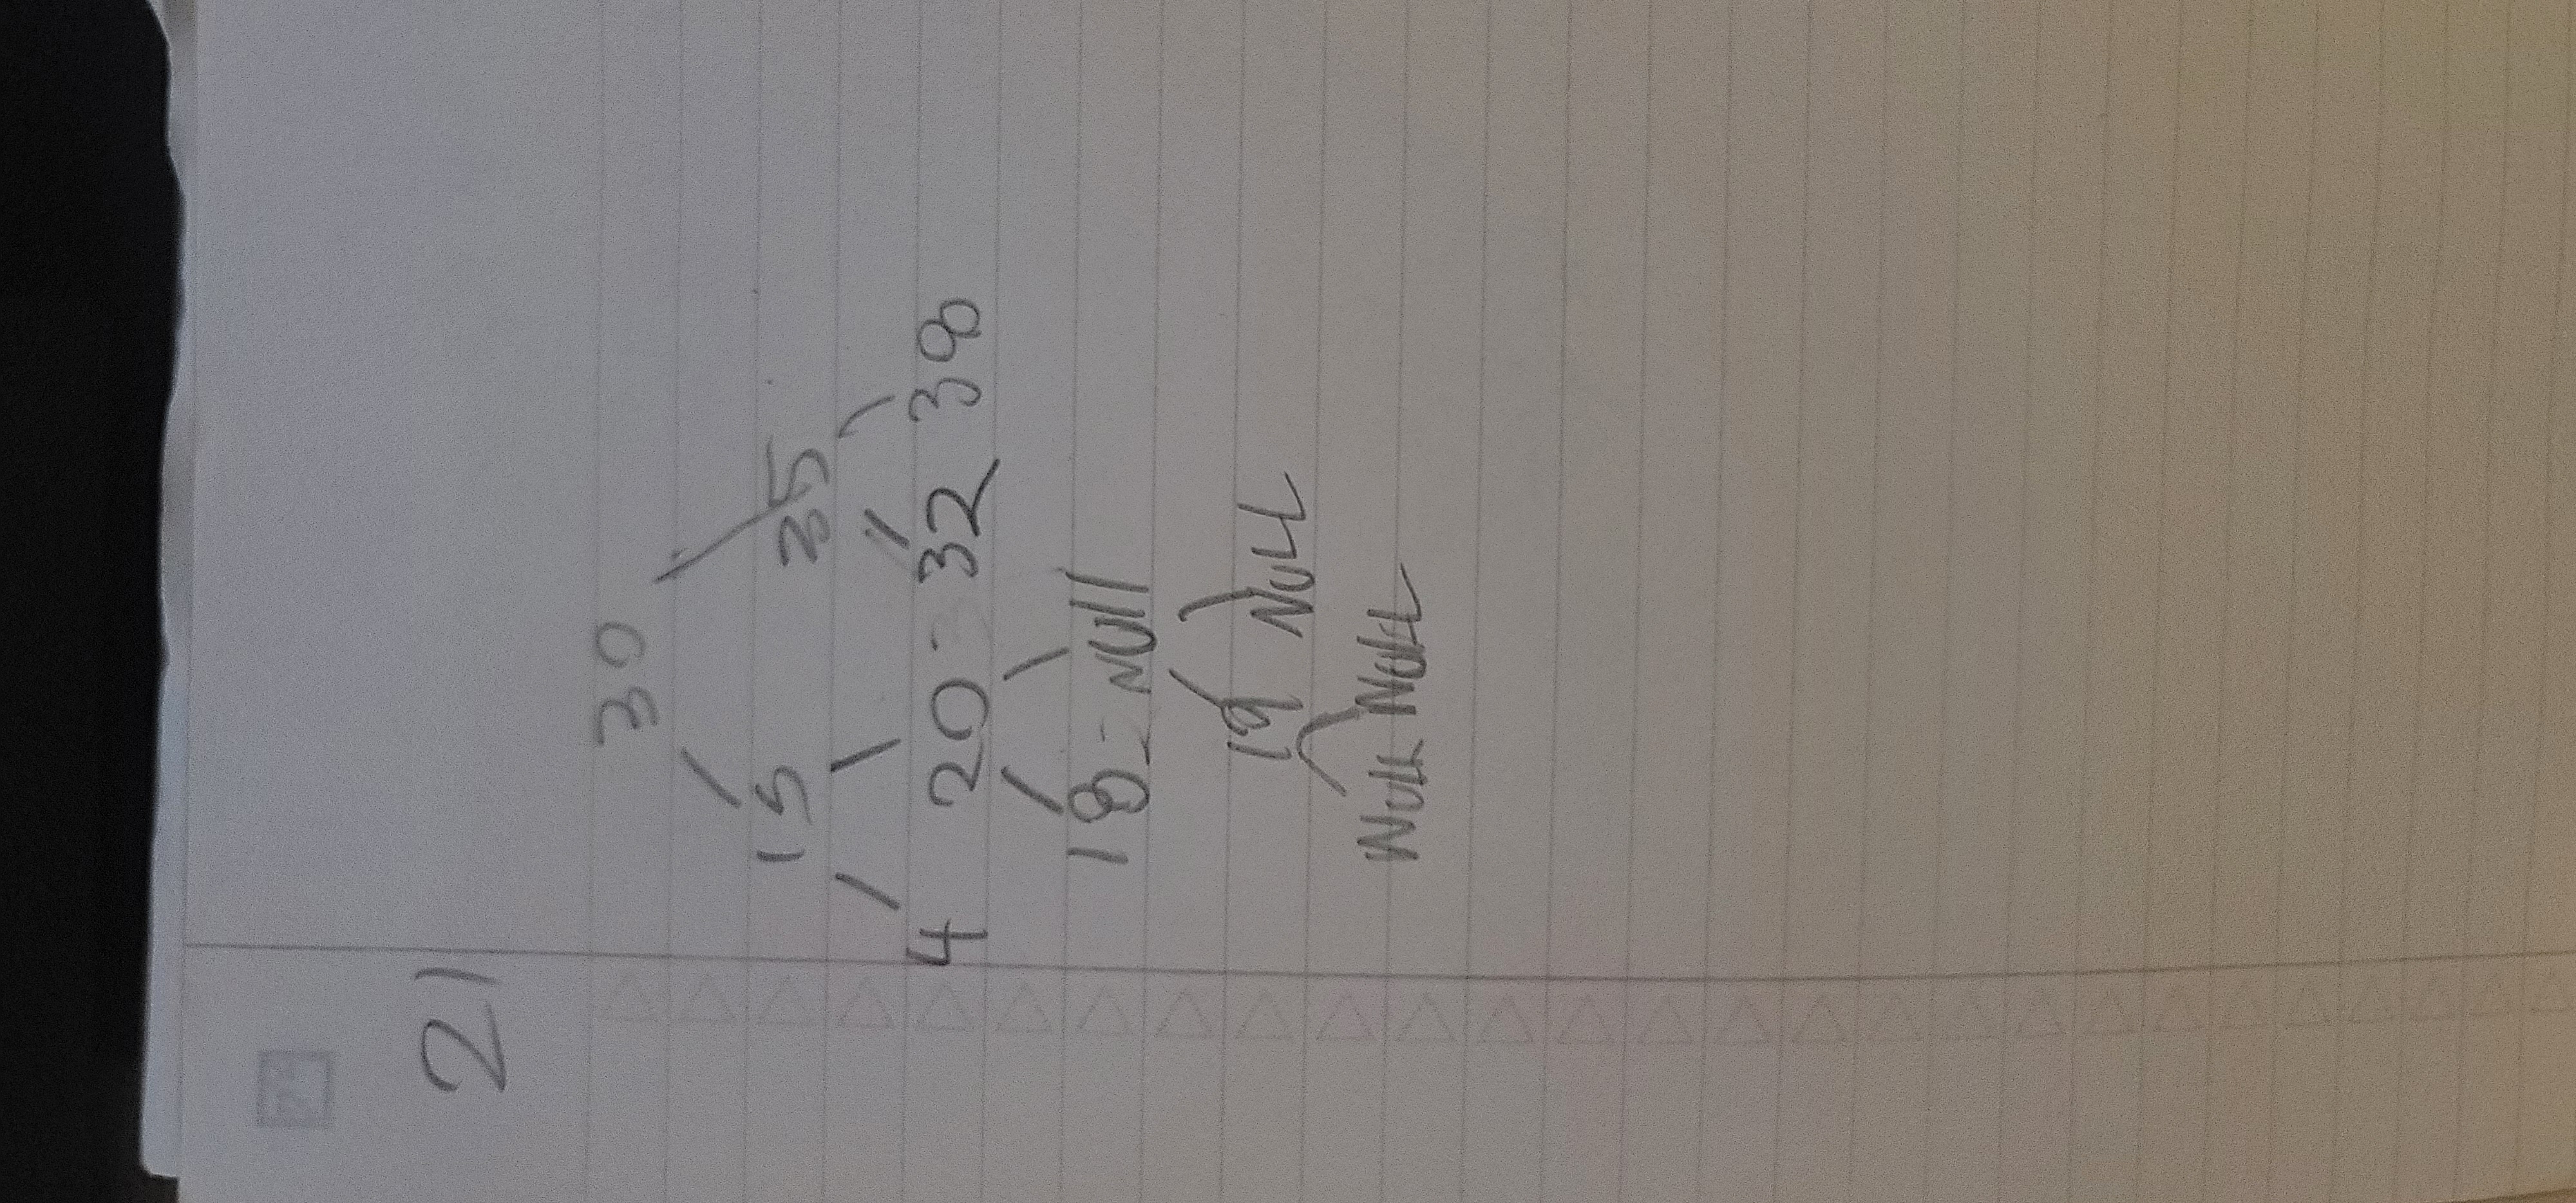 21
30
15 35
4 20 - 32 38
18 = NUll
19 NULL
NULL NULL